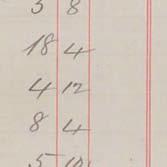 5 8
18 4
4 12
8 4
5 10